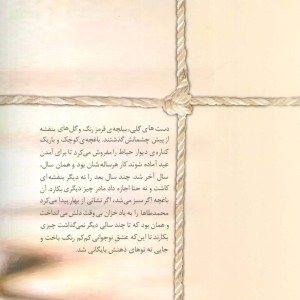 دست‌های گِلی، بیلچه‌ی قرمز رنگ و گل‌های بنفشه
از پیش چشمانش گذشتند. باغچه‌ی کوچک و باریک
کناره‌ی دیوار حیاط را مفروش می‌کرد تا برای آمدن
عید آماده شوند. کار هرساله‌شان بود و همان سال،
سال آخر شد. چند سال بعد را نه دیگر بنفشه‌ای
کاشت و نه حتا اجازه داد مادر چیز دیگری بکارد. آن
باغچه اگر سبز می‌شد، اگر نشانی از بهار پیدا می‌کرد
محمدطاها را به یاد خزان بی‌وقت دلش می‌انداخت
و همان بود که تا چند سالی دیگر نمی‌گذاشت چیزی
بکارند تا این‌که عشق نوجوانی کم‌کم رنگ باخت و
جایی ته توهای ذهنش بایگانی شد.